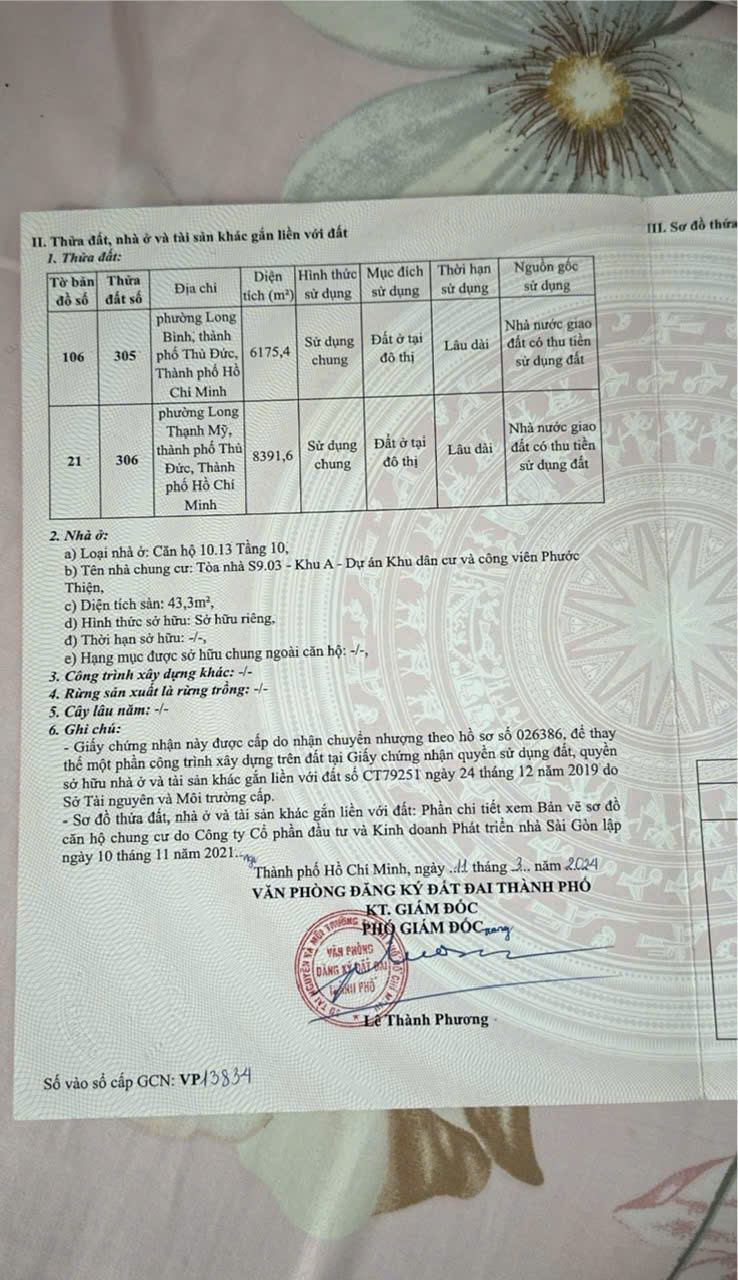 II. Thửa đất, nhà ở và tài sản khác gắn liền với đất
III. Sơ đồ thửa
1. Thửa đất:
Tờ bản đồ số | Thửa đất số | Địa chỉ | Diện tích (m²) | Hình thức sử dụng | Mục đích sử dụng | Thời hạn sử dụng | Nguồn gốc sử dụng
106 | 305 | phường Long Bình, thành phố Thủ Đức, Thành phố Hồ Chí Minh | 6175,4 | Sử dụng chung | Đất ở tại đô thị | Lâu dài | Nhà nước giao đất có thu tiền sử dụng đất
21 | 306 | phường Long Thạnh Mỹ, thành phố Thủ Đức, Thành phố Hồ Chí Minh | 8391,6 | Sử dụng chung | Đất ở tại đô thị | Lâu dài | Nhà nước giao đất có thu tiền sử dụng đất
2. Nhà ở:
a) Loại nhà ở: Căn hộ 10.13 Tầng 10,
b) Tên nhà chung cư: Tòa nhà S9.03 - Khu A - Dự án Khu dân cư và công viên Phước
Thiện,
c) Diện tích sàn: 43,3m²,
d) Hình thức sở hữu: Sở hữu riêng,
đ) Thời hạn sở hữu: -/-,
e) Hạng mục được sở hữu chung ngoài căn hộ: -/-,
3. Công trình xây dựng khác: -/-
4. Rừng sản xuất là rừng trồng: -/-
5. Cây lâu năm: -/-
6. Ghi chú:
- Giấy chứng nhận này được cấp do nhận chuyển nhượng theo hồ sơ số 026386, để thay
thế một phần công trình xây dựng trên đất tại Giấy chứng nhận quyền sử dụng đất, quyền
sở hữu nhà ở và tài sản khác gắn liền với đất số CT79251 ngày 24 tháng 12 năm 2019 do
Sở Tài nguyên và Môi trường cấp.
- Sơ đồ thửa đất, nhà ở và tài sản khác gắn liền với đất: Phần chi tiết xem Bản vẽ sơ đồ
căn hộ chung cư do Công ty Cổ phần đầu tư và Kinh doanh Phát triển nhà Sài Gòn lập
ngày 10 tháng 11 năm 2021.
Thành phố Hồ Chí Minh, ngày 11 tháng 3 năm 2024
VĂN PHÒNG ĐĂNG KÝ ĐẤT ĐAI THÀNH PHỐ
KT. GIÁM ĐỐC
PHÓ GIÁM ĐỐC
VĂN PHÒNG
ĐĂNG KÝ ĐẤT ĐAI
THÀNH PHỐ
Lê Thành Phương
Số vào sổ cấp GCN: VP13834